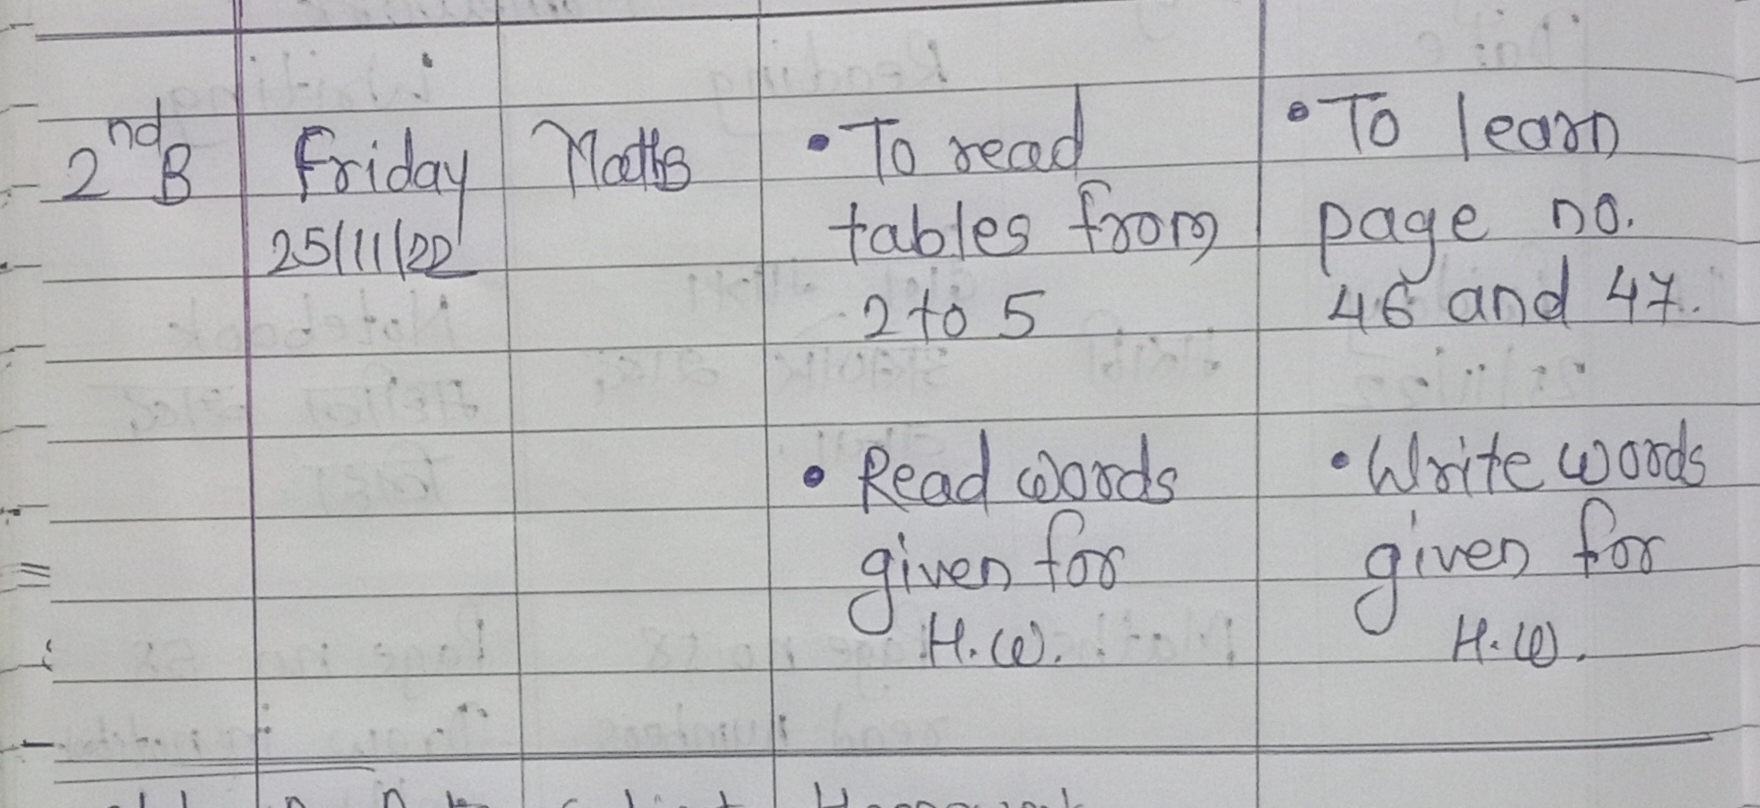 2nd B Friday Maths • To read • To learn
25/11/22 tables from page no.
2 to 5 46 and 47.
• Read words • Write words
given for given for
H.W. H.W.